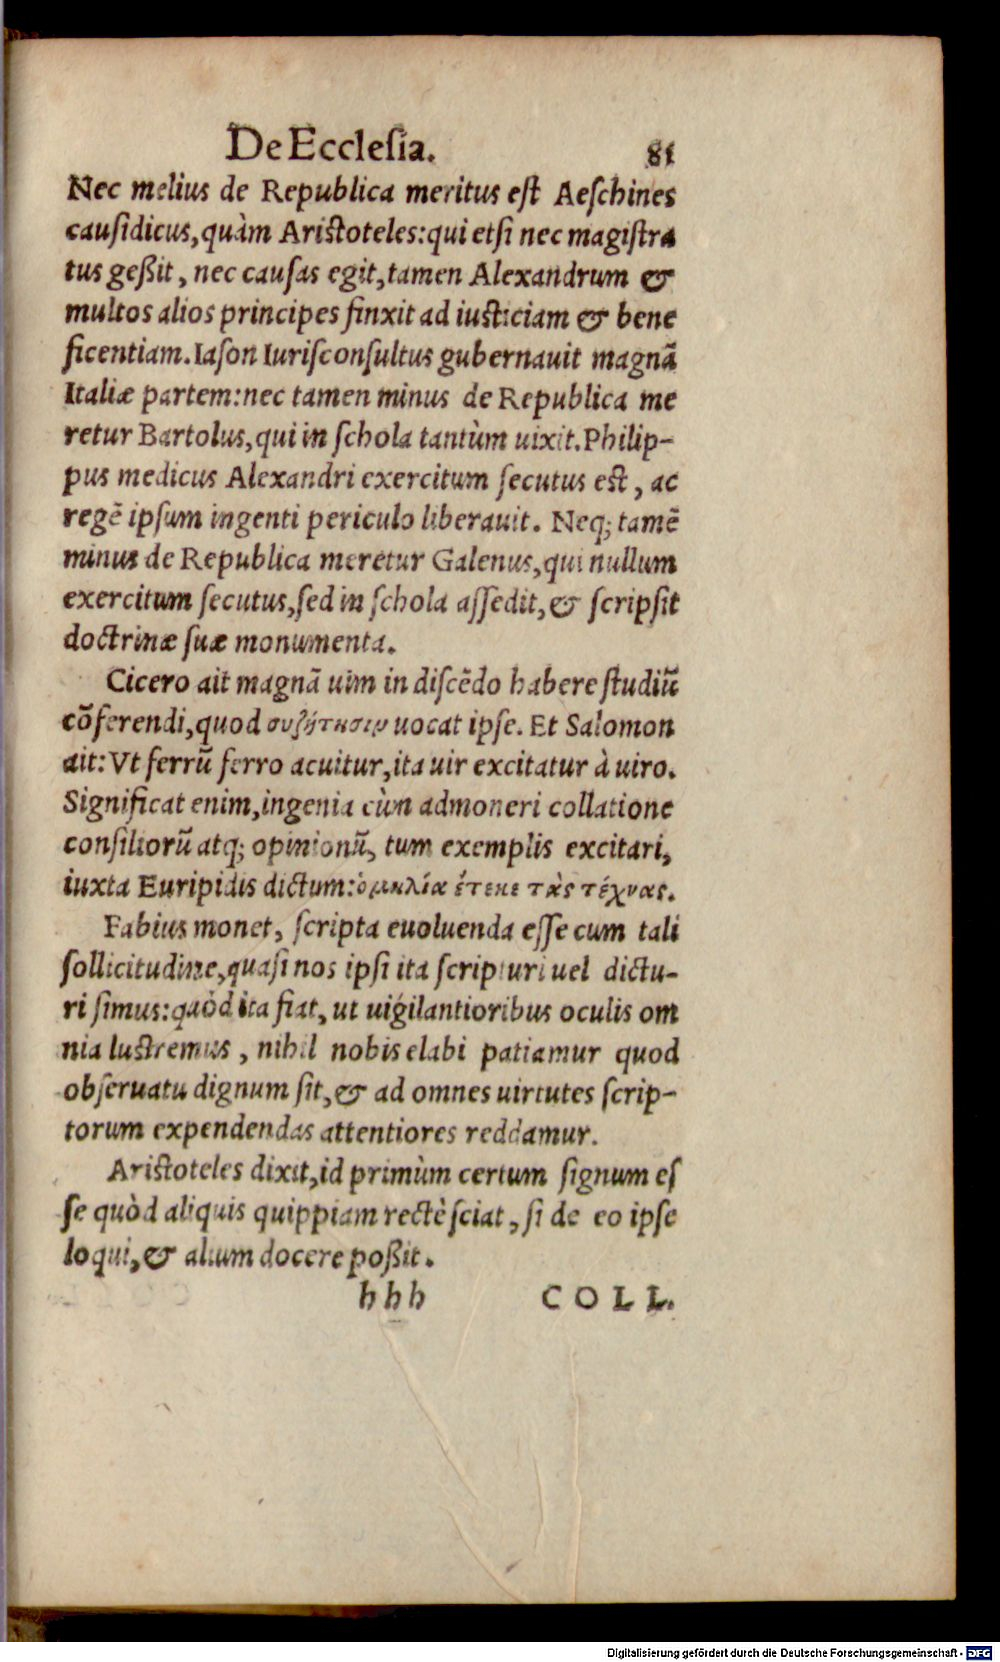 De Ecclesia. 81
Nec melius de Republica meritus est Aeſchines
cauſidicus, quàm Ariſtoteles: qui etſi nec magiſtra
tus geßit, nec cauſas egit, tamen Alexandrum &
multos alios principes finxit ad iuſticiam & bene
ficentiam. Iaſon Iuriſconſultus gubernauit magnã
Italiæ partem: nec tamen minus de Republica me
retur Bartolus, qui in ſchola tantùm uixit. Philip-
pus medicus Alexandri exercitum ſecutus eſt, ac
regẽ ipſum ingenti periculo liberauit. Neq; tamẽ
minus de Republica meretur Galenus, qui nullum
exercitum ſecutus, ſed in ſchola aſſedit, & ſcripſit
doctrinæ ſuæ monumenta.
Cicero ait magnã uim in diſcẽdo habere ſtudiũ
cõferendi, quod συζήτησιν uocat ipſe. Et Salomon
ait: Vt ferrũ ferro acuitur, ita uir excitatur à uiro.
Significat enim, ingenia cùm admoneri collatione
conſiliorũ atq; opinionũ, tum exemplis excitari,
iuxta Euripidis dictum: ὁμιλία ἔτεκε τὰς τέχνας.
Fabius monet, ſcripta euoluenda eſſe cum tali
ſollicitudine, quaſi nos ipſi ita ſcripturi uel dictu-
ri ſimus: quòd ita fiat, ut uigilantioribus oculis om
nia luſtremus, nihil nobis elabi patiamur quod
obſeruatu dignum ſit, & ad omnes uirtutes ſcrip-
torum expendendas attentiores reddamur.
Ariſtoteles dixit, id primùm certum ſignum eſ
ſe quòd aliquis quippiam rectè ſciat, ſi de eo ipſe
loqui, & alium docere poßit.
hhh COLL.
Digitalisierung gefördert durch die Deutsche Forschungsgemeinschaft - DFG